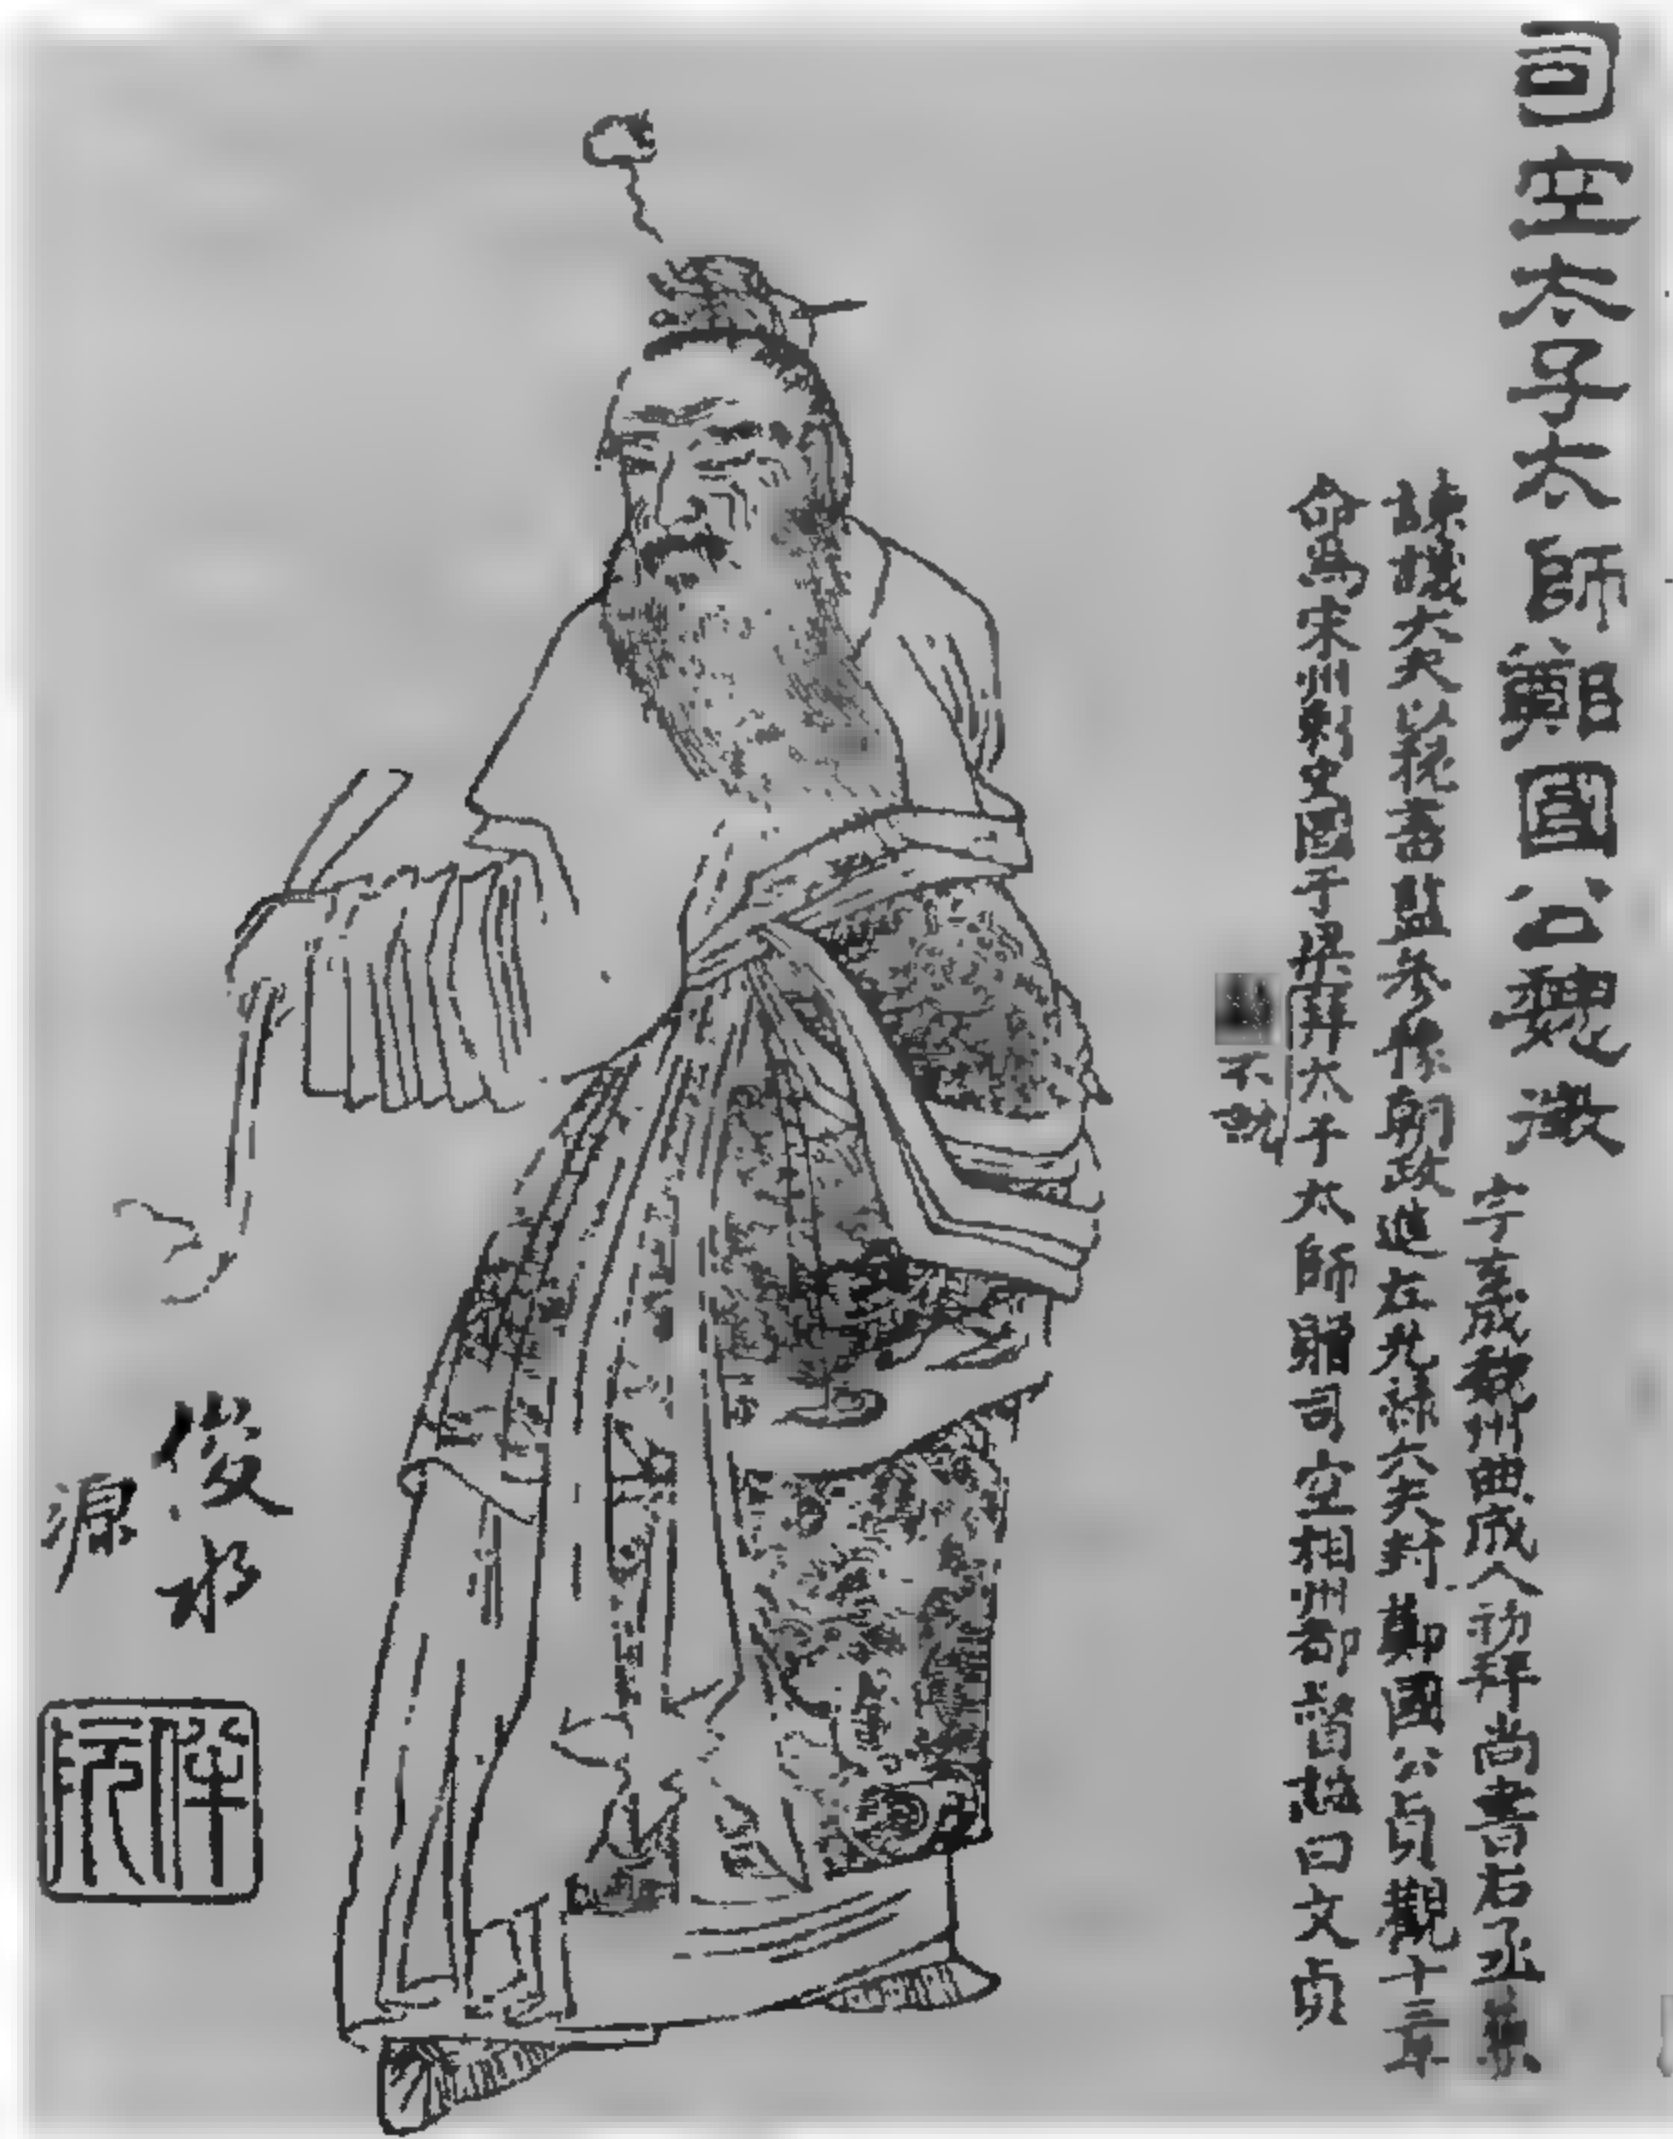 司空太子太師鄭國公魏徵
字玄成魏州曲成人初拜尚書右丞兼
諫議大夫以秘書監參豫朝政進左光祿大夫封鄭國公貞觀十三年
命為宋州刺史國子祭酒太子太師贈司空相州都督諡曰文貞
不說
俊水
源